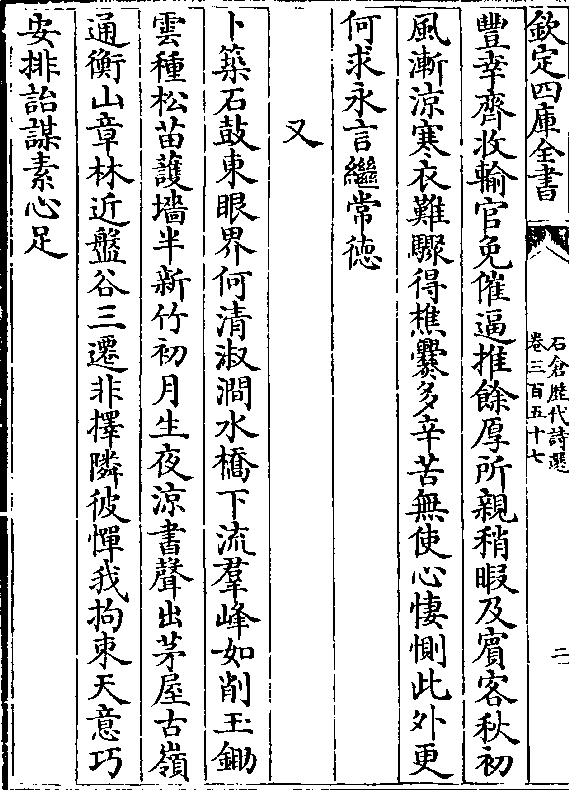 欽定四庫全書
石倉歷代詩選
卷三百五十七
二
豐幸齊收輸官免催逼推餘厚所親稍暇及賓客秋初
風漸涼寒衣難驟得樵爨多辛苦無使心悽惻此外更
何求永言繼常德
又
卜築石鼓東眼界何清淑澗水橋下流羣峰如削玉鋤
雲種松苗護墻半新竹初月生夜涼書聲出茅屋古嶺
通衡山章林近盤谷三遷非擇隣彼憚我拘束天意巧
安排詒謀素心足